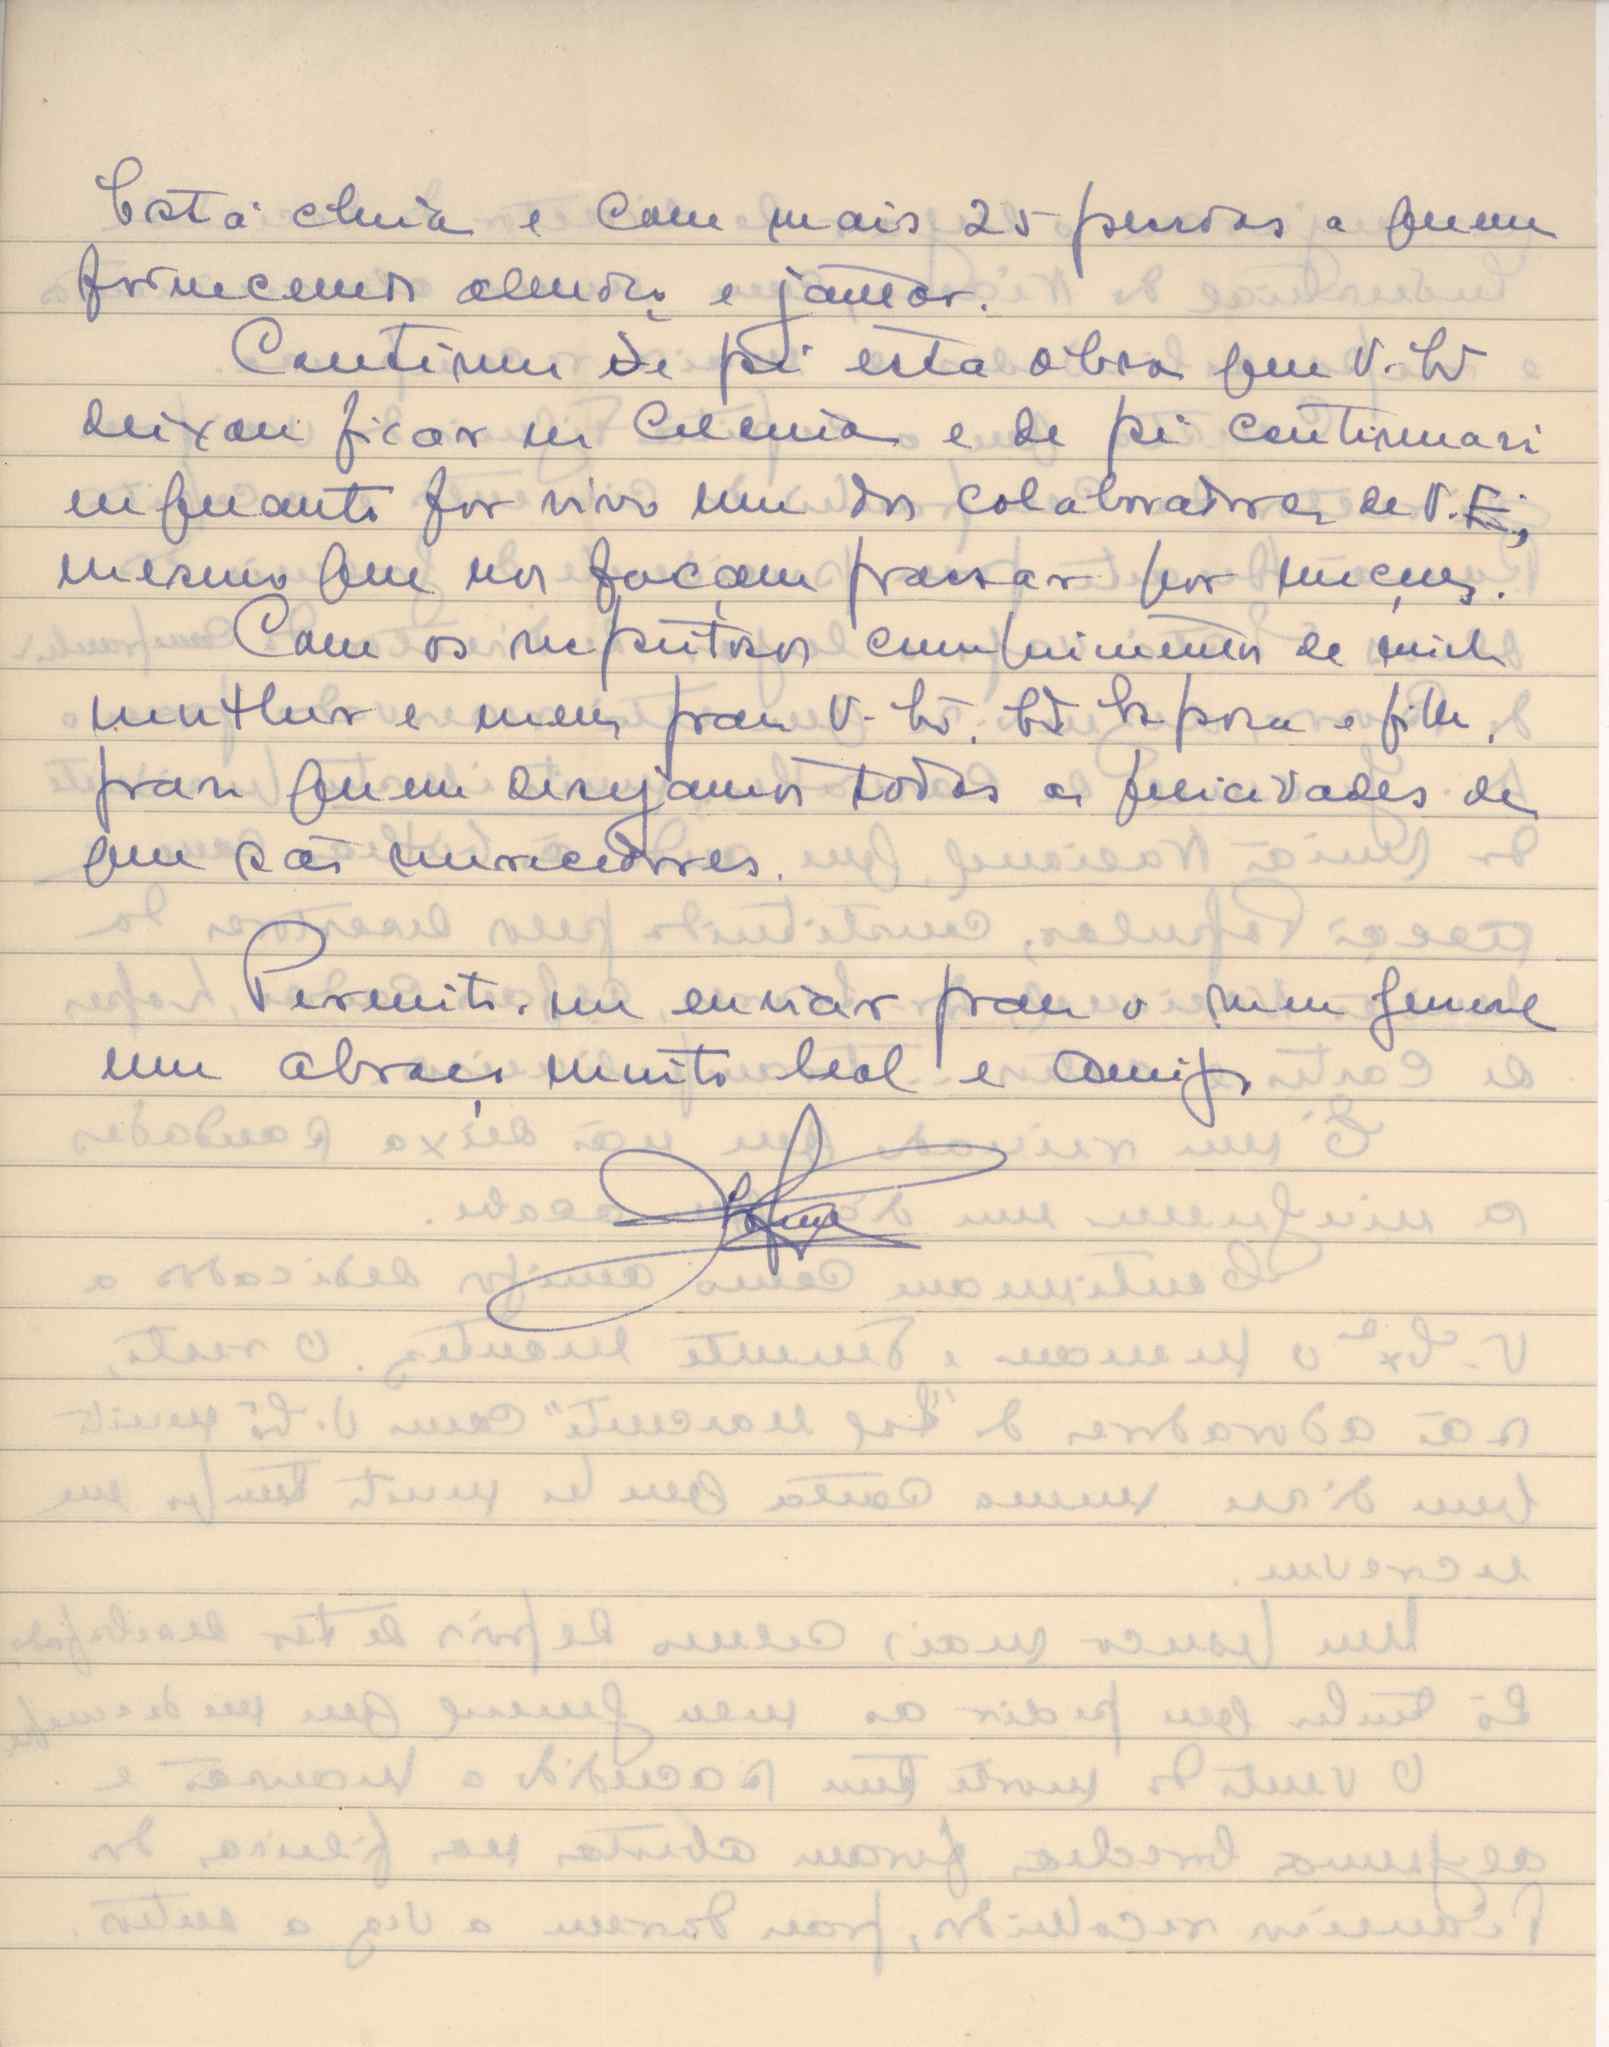 Está cheia e com mais 25 pessoas a quem
fornecemos almoço e jantar.
Continua de pé esta obra que V. Ex.
deixou ficar na Colonia e de pé continuará
enquanto for vivo um dos colaboradores de V. E.,
mesmo que nos façam passar por maçons.
Com os respeitosos cumprimentos de minha
mulher e meus para V. Ex. Ex. Esposa e filha,
para quem desejamos todas as felicidades de
que são merecedores.
Permita-me enviar para o meu General
um abraço muito leal e amigo